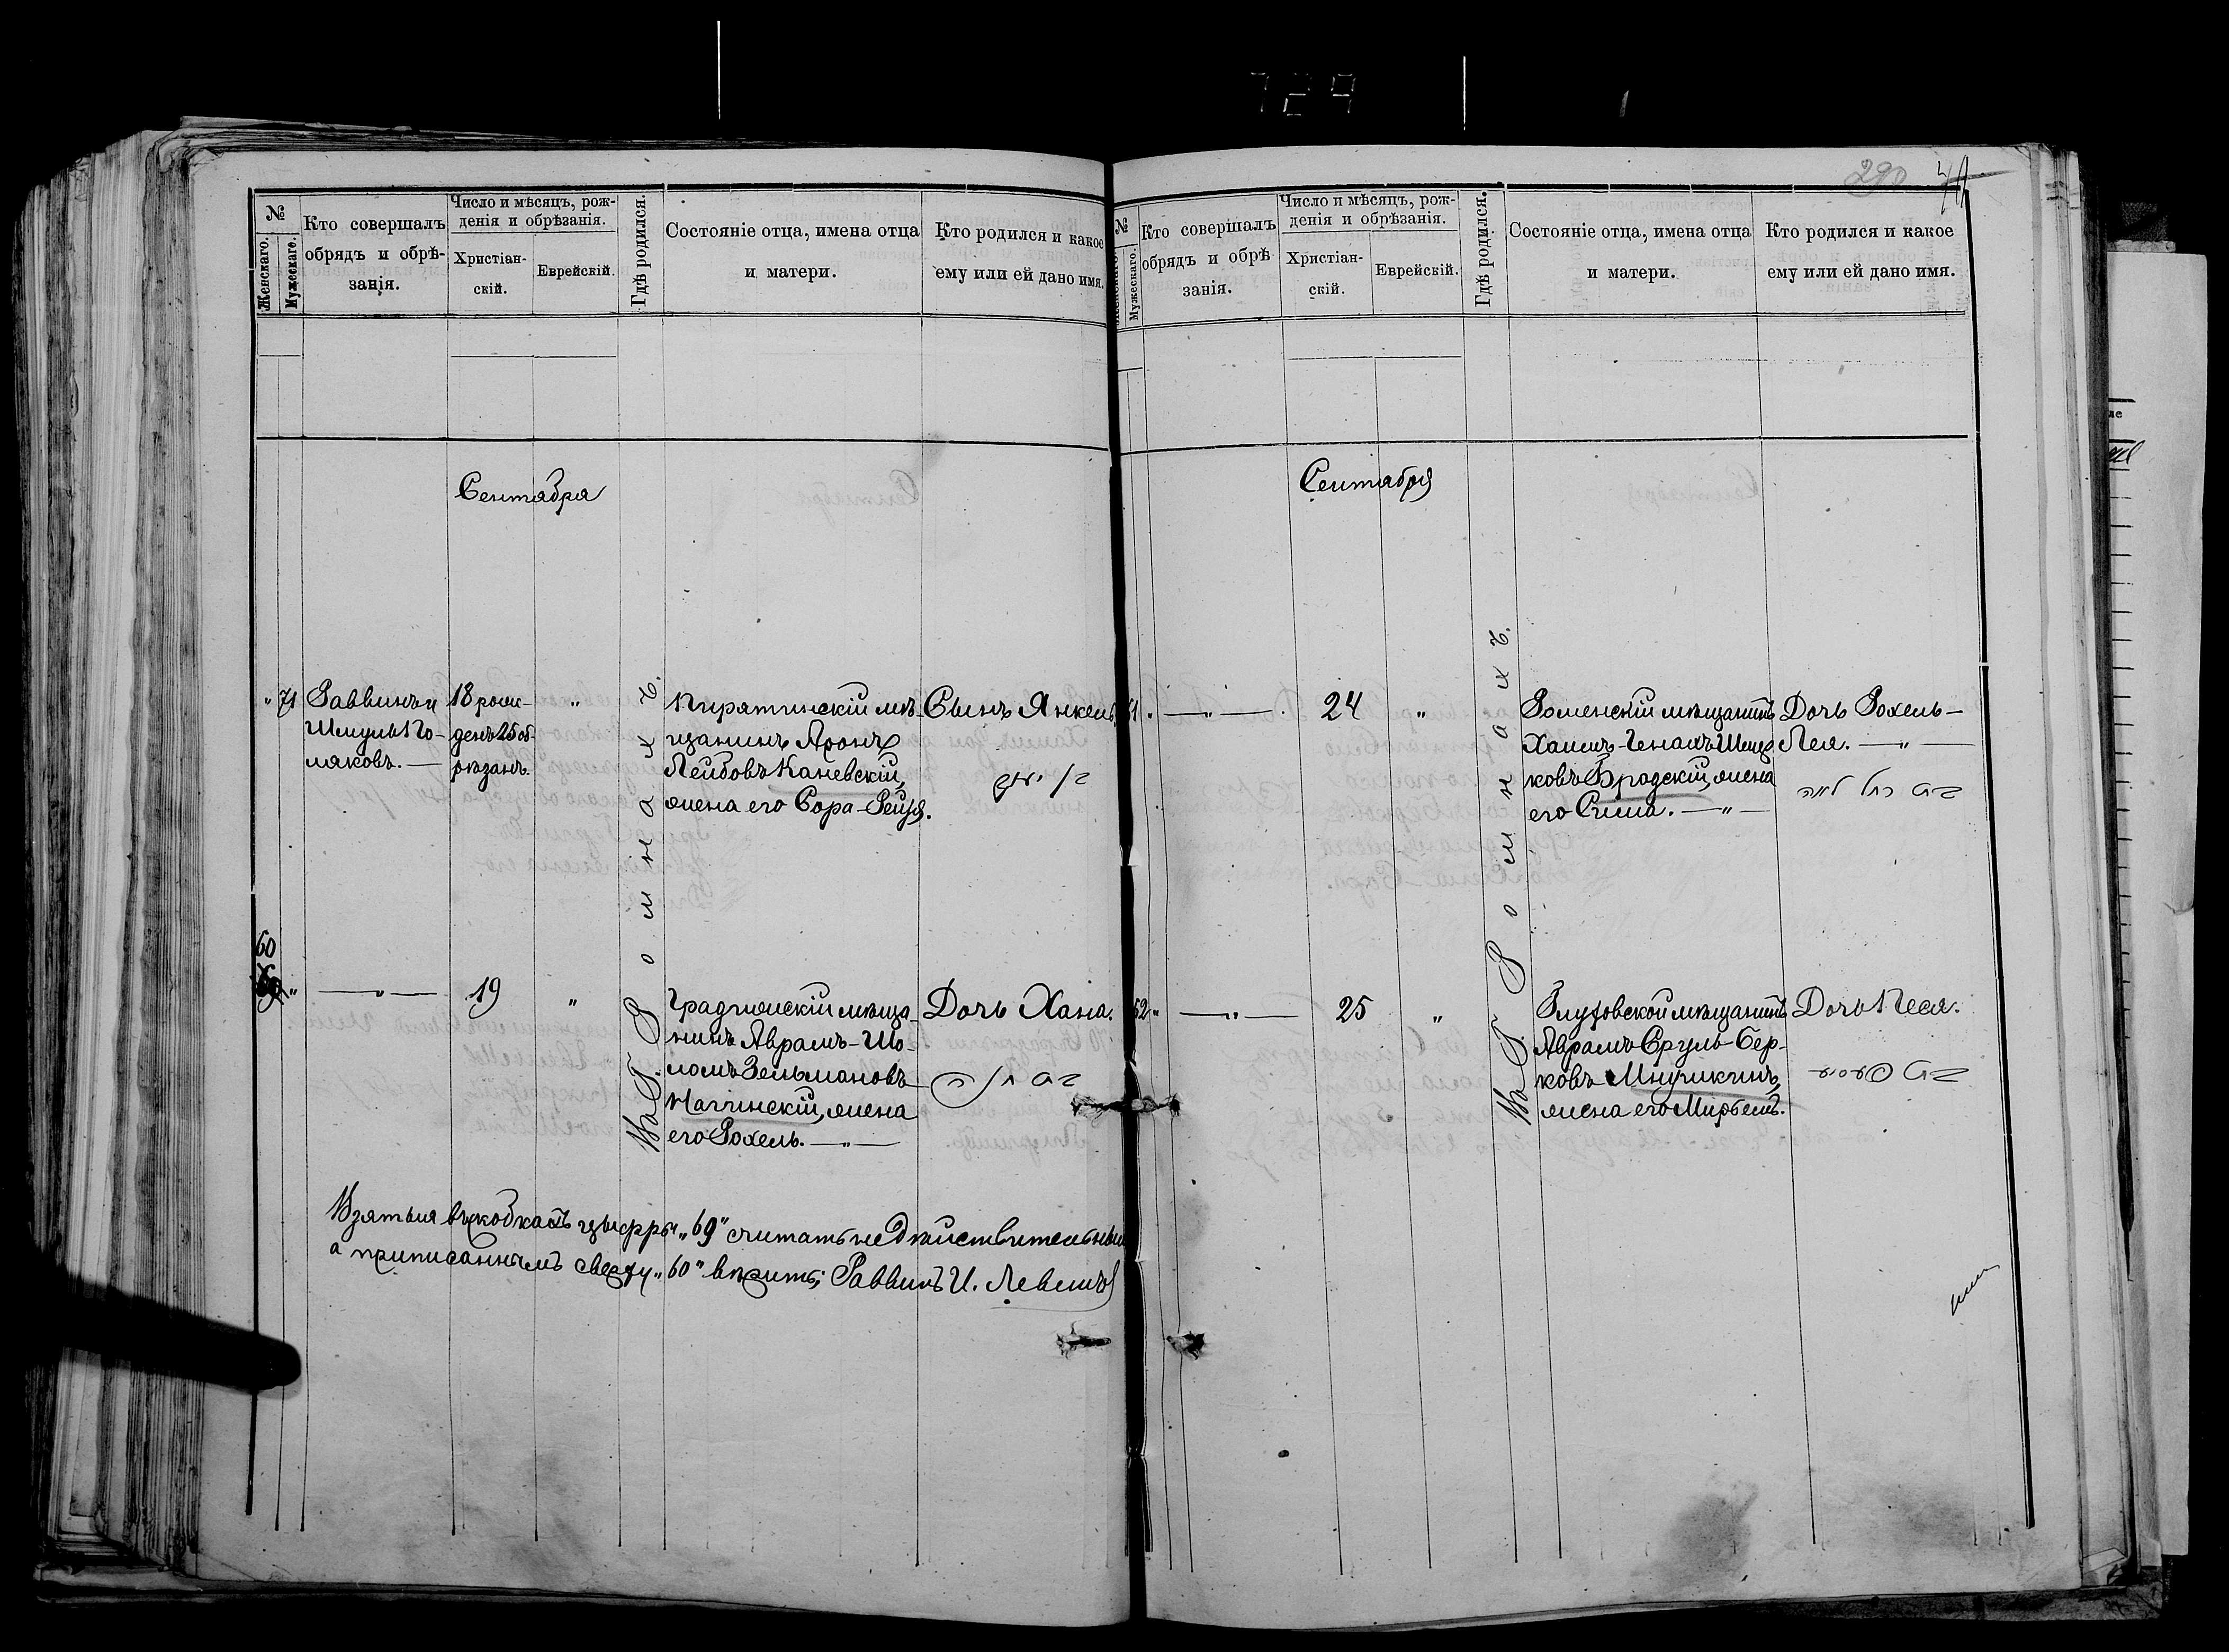 729
290
№
Женскаго.
Мужескаго.
Кто совершалъ
обрядъ и обрѣ-
занія.
Число и мѣсяцъ, рож-
денія и обрѣзанія.
Христіан-
скій.
Еврейскій.
Гдѣ родился.
Состояніе отца, имена отца
и матери.
Кто родился и какое
ему или ей дано имя.
Сентября
" 71
Раввинъ и
Шмуль По-
ляковъ. —
18 рож-
денъ 25 об-
рѣзанъ.
"
Въ г. Ромнахъ.
Пирятинскій мѣ-
щанинъ Аронъ
Лейбовъ Каневскій,
жена его Сора-Рейзя.
Сынъ Янкель
בן יעקב
60
"
— " —
19
"
Градижскій мѣща-
нинъ Аврамъ-Шо-
ломъ Зельмановъ
жена
его Рохель. — " —
Дочь Хана.
בת חנה
Взятыя въ скобкахъ цыфры „69" считать недѣйствительными
а приписаннымъ сверху „60" вѣрить; Раввинъ И.
№
Женскаго.
Мужескаго.
Кто совершалъ
обрядъ и обрѣ-
занія.
Число и мѣсяцъ, рож-
денія и обрѣзанія.
Христіан-
скій.
Еврейскій.
Гдѣ родился.
Состояніе отца, имена отца
и матери.
Кто родился и какое
ему или ей дано имя.
Сентября
61 "
— " —
24
"
Въ г. Ромнахъ.
Роменскій мѣщанинъ
Хаимъ-
ковъ Бродскій, жена
его Сима. — " —
Дочь Рохель-
Лея. — " —
בת רחל לאה
62 "
— " —
25
"
Глуховской мѣщанинъ
Аврамъ Сруль Бер-
ковъ
жена его
Дочь Песя.
בת פעסיע